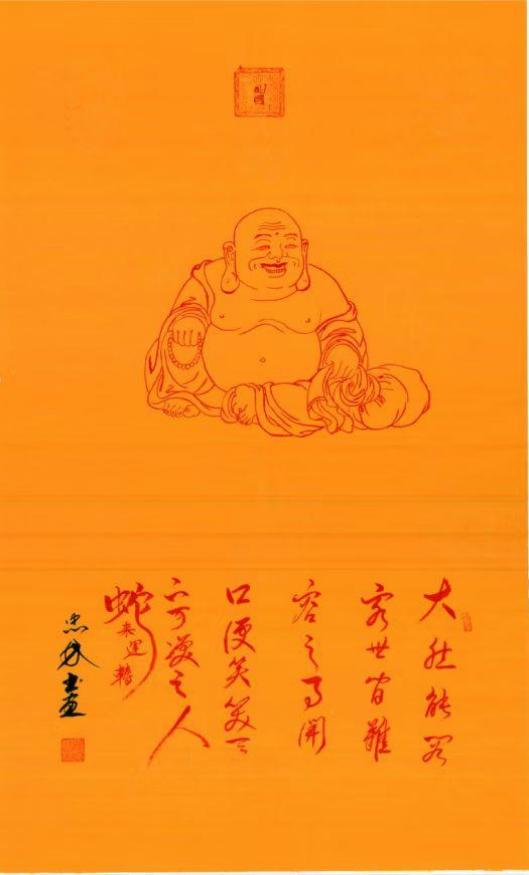 大肚能容
容世间難
容之事開
口便笑笑天
下可笑之人
蛇来運轉
忠書画